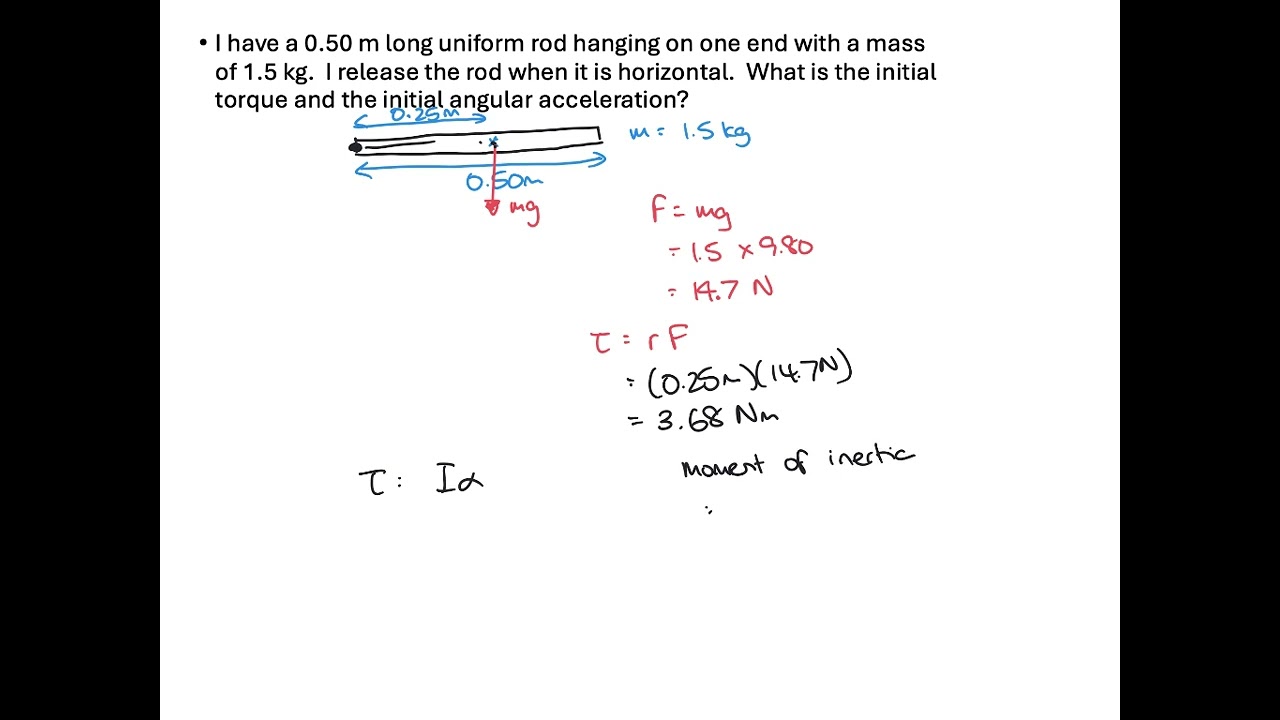 • I have a 0.50 m long uniform rod hanging on one end with a mass
of 1.5 kg.  I release the rod when it is horizontal.  What is the initial
torque and the initial angular acceleration?
0.25m
m = 1.5 kg
0.50m
mg
F = mg
= 1.5 × 9.80
= 14.7 N
τ = r F
= (0.25m)(14.7N)
= 3.68 Nm
moment of inertia
τ = Iα